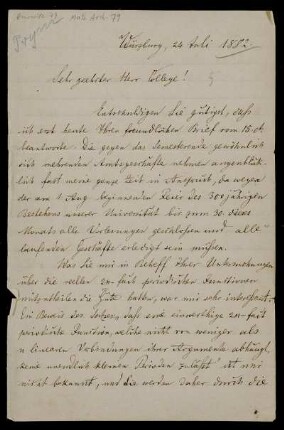 Würzburg, 24 Juli 1882
Sehr geehrter Herr College!
Entschuldigen Sie gütigst, dass
ich erst heute Ihren freundlichen Brief vom 15. d.
beantworte. Die gegen das Semesterende gewöhnlich
sich mehrenden Amtsgeschäfte nehmen augenblick-
lich fast meine ganze Zeit in Anspruch, da wegen
der am 1 Aug. beginnenden Feier des 300 jährigen
Bestehens unserer Universität bis zum 30. dieses
Monats alle Vorlesungen geschlossen und alle
laufenden Geschäfte erledigt sein müssen.
Was Sie mir in Betreff Ihrer Untersuchungen
über die vielfach periodischen Functionen
mitzutheilen die Güte hatten, war mir sehr interessant.
Ein Beweis des Satzes, daß eine einwerthige
periodische Function, welche nicht von weniger als
n linearen Verbindungen ihrer Argumente abhängt,
keine unendlich kleinen Perioden zuläßt ist mir
nicht bekannt, und Sie werden daher durch die